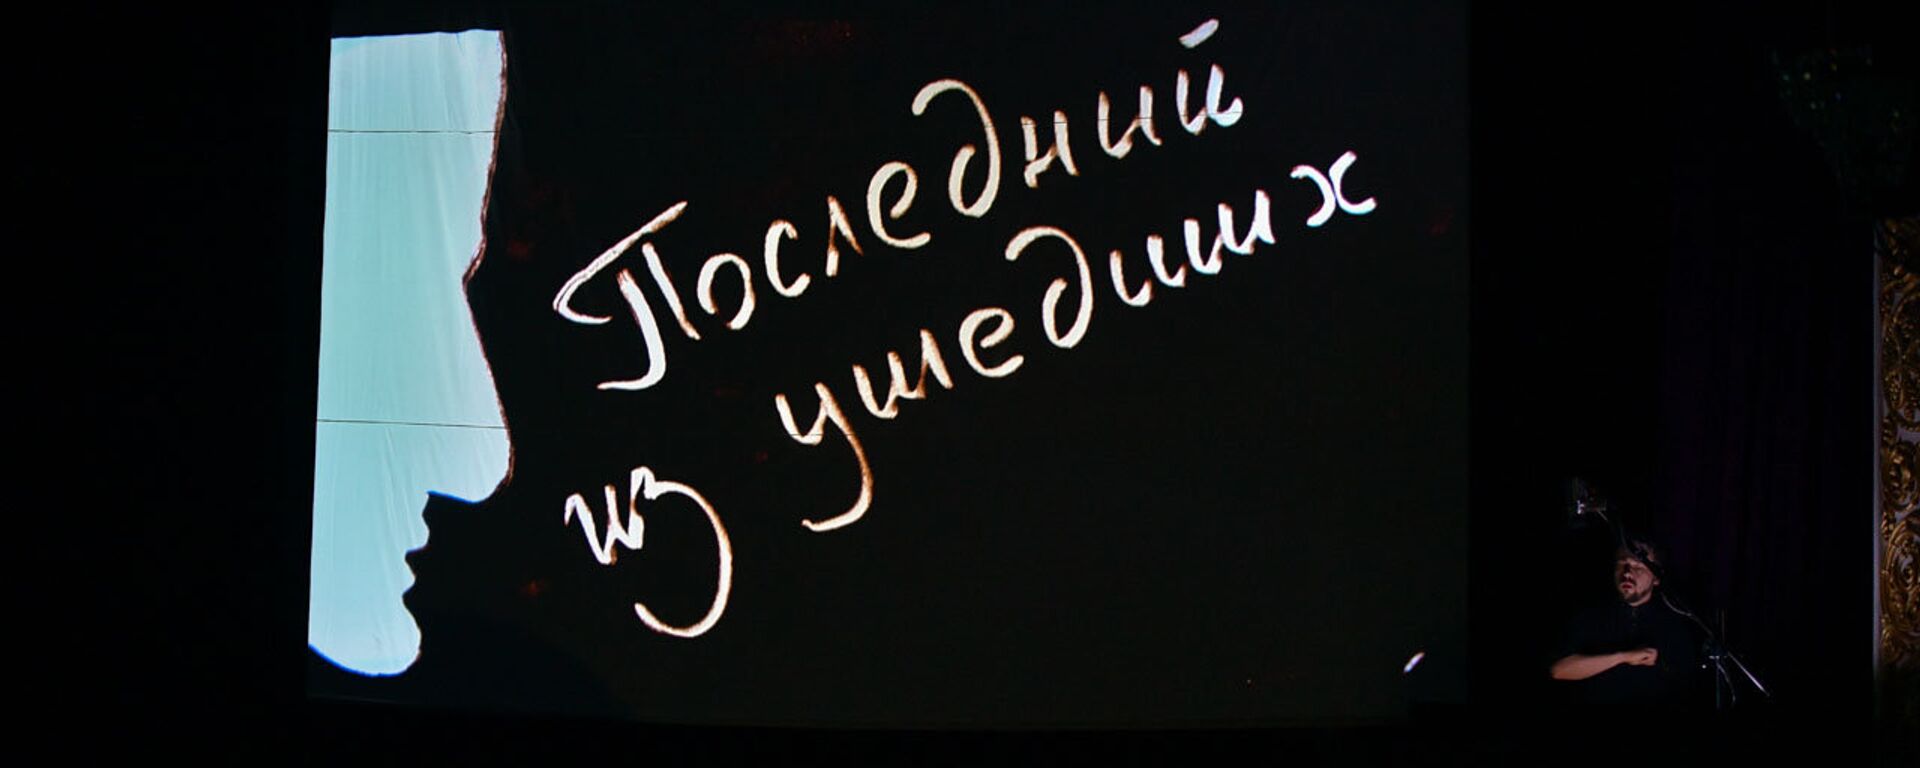 Последний
из ушедших